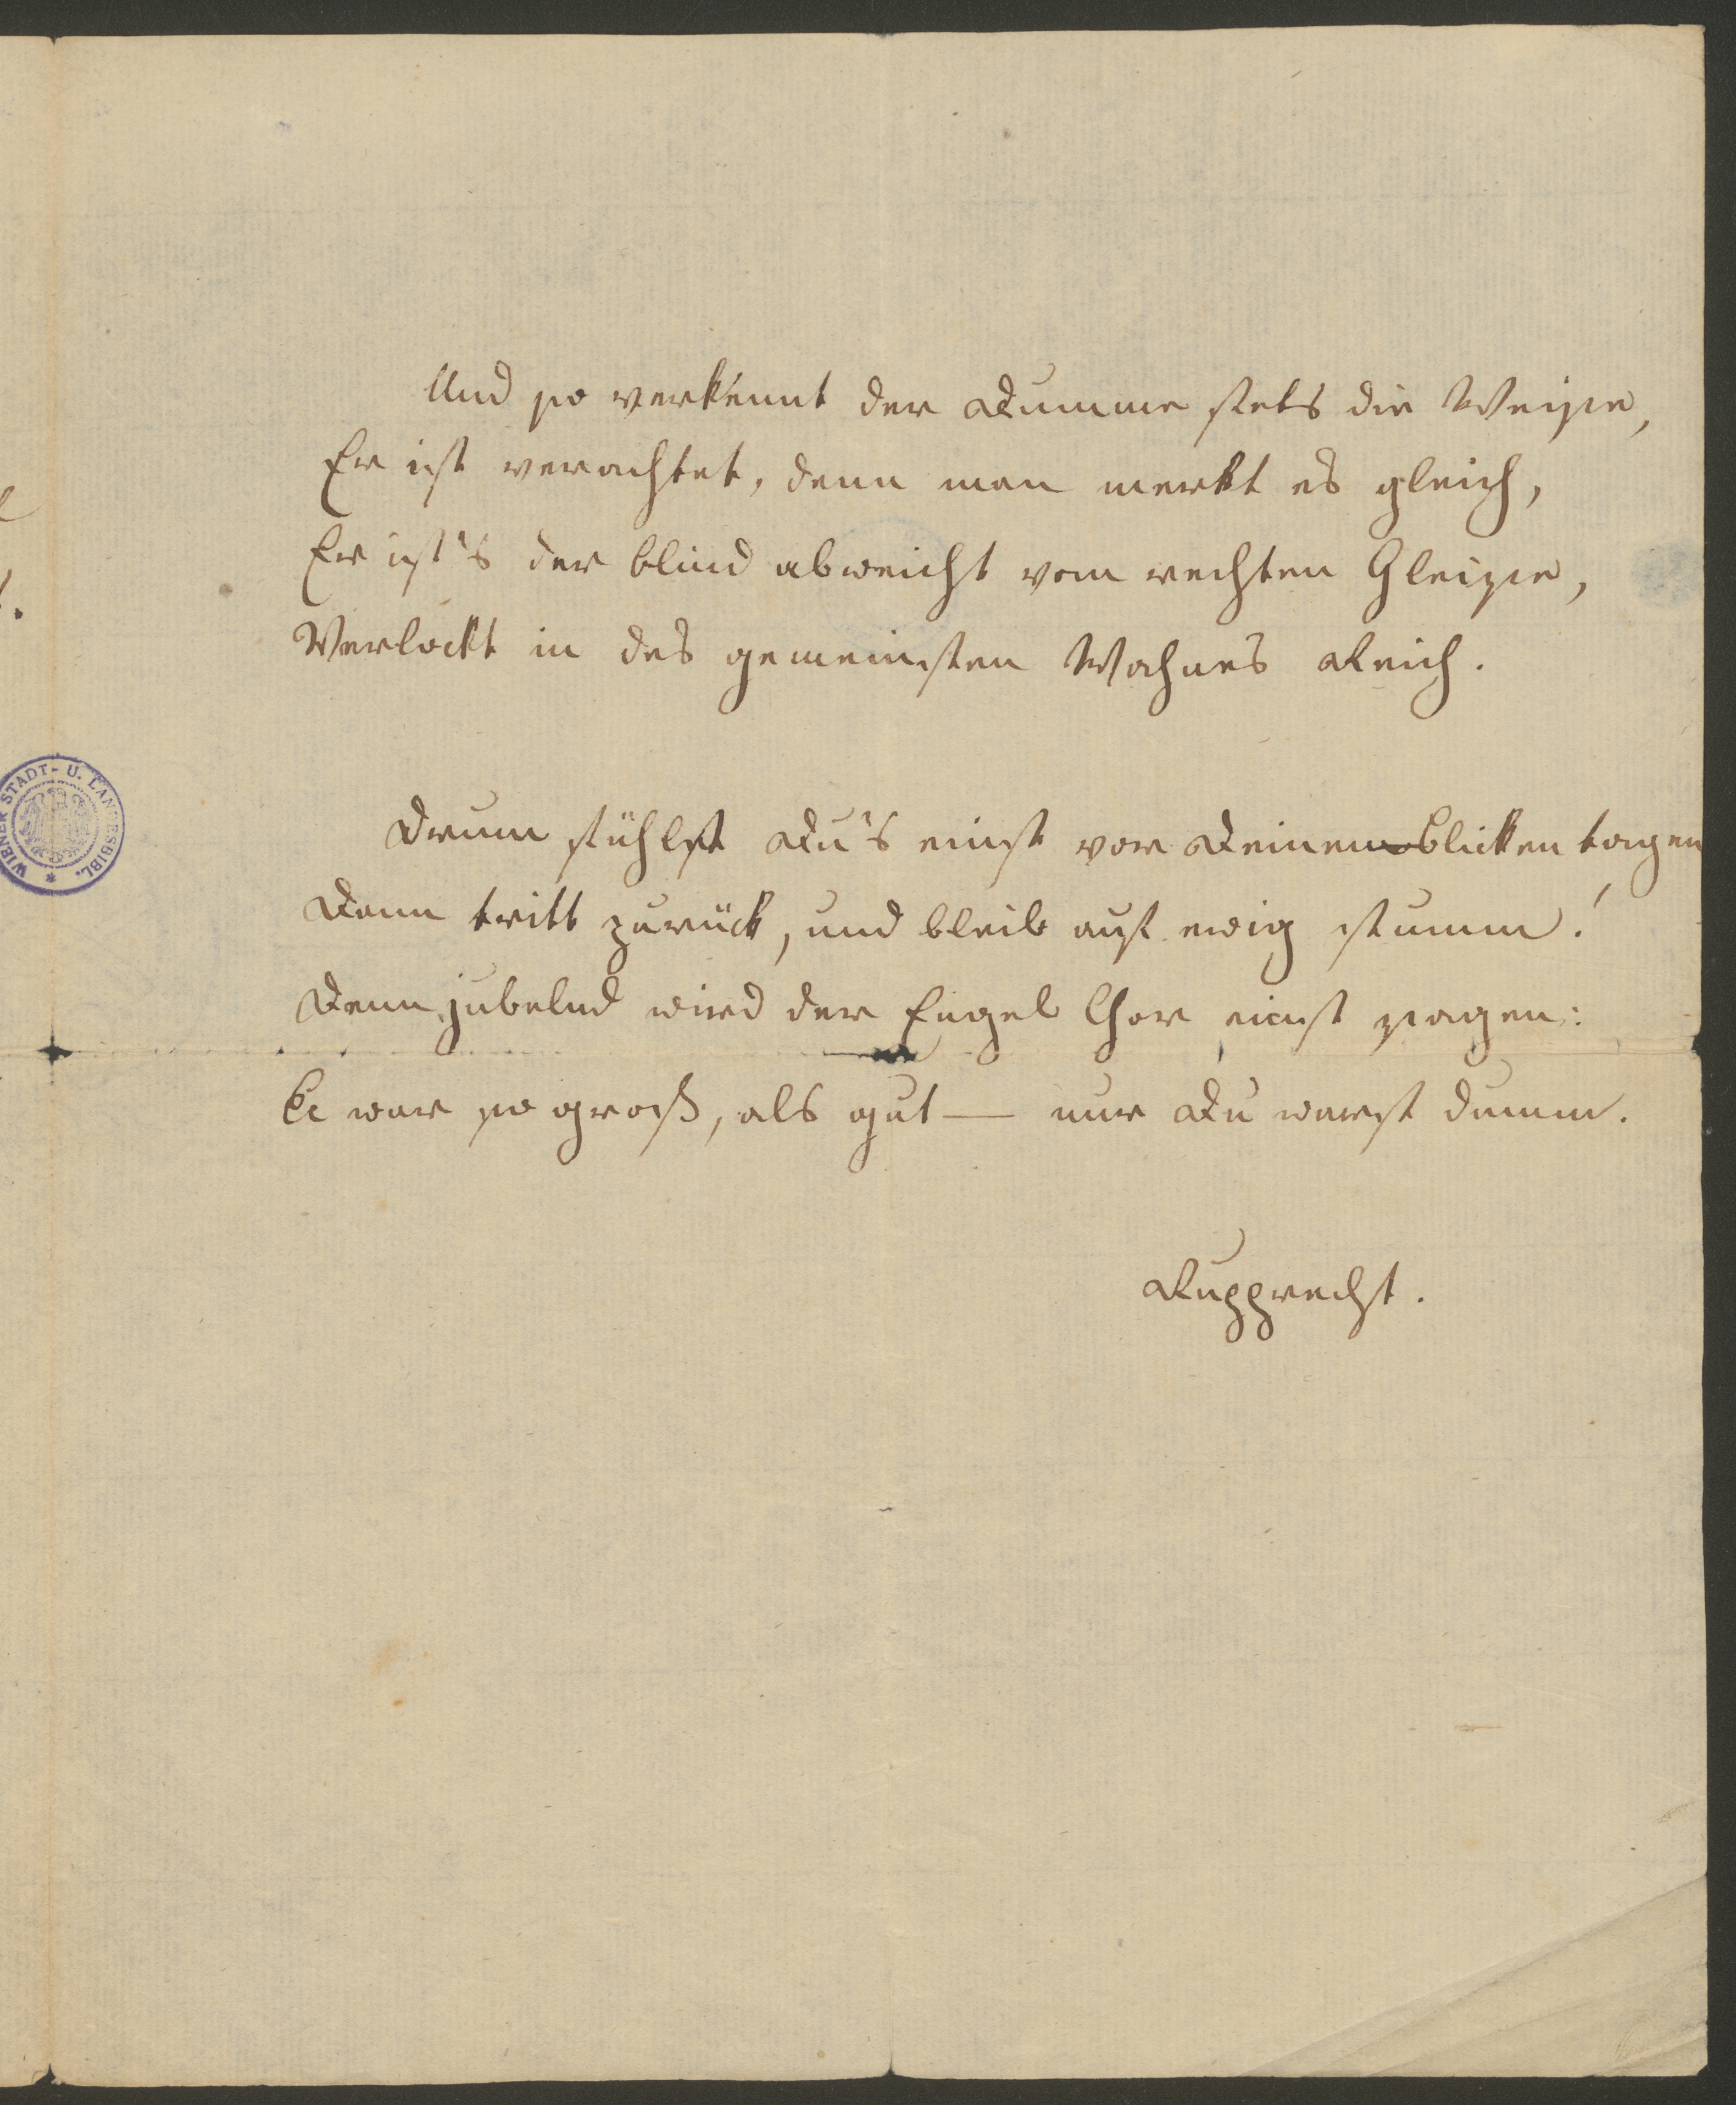 Und so verkennt der Dumme stets die Weise,
Er ist verachtet, denn man merkt es gleich,
Er ist's der blind abweicht vom rechten Gleise,
Verlockt in des gemeinsten Wahnes Reich.
WIENER STADT- U. LANDESBIBL.
Drum fühlst Du's einst vor Deinen Blicken tagen
Dann tritt zurück, und bleib auf ewig stumm!
Denn jubelnd wird der Engel Chor einst sagen:
Er war so groß, als gut — nur Du warst dumm.
Rupprecht.